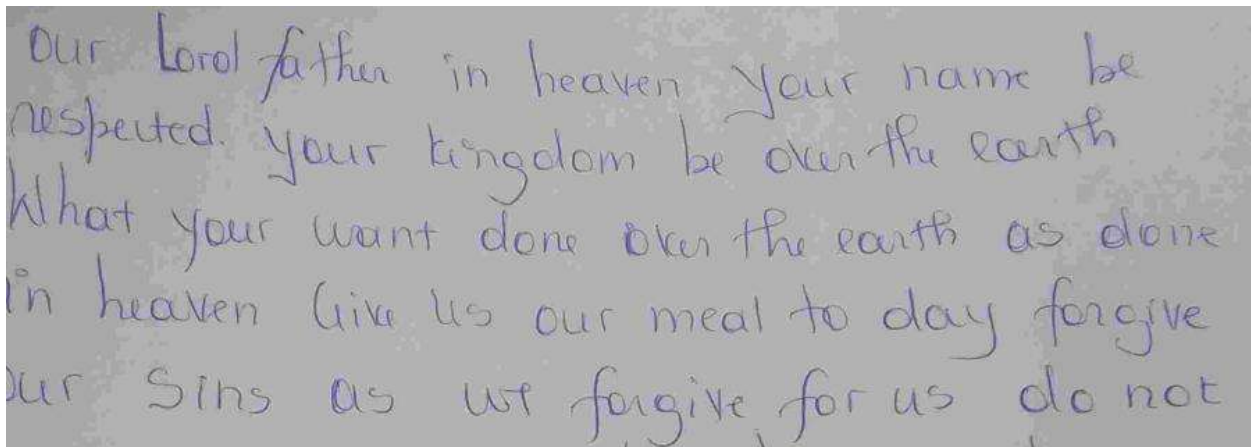 our Lord father in heaven your name be
respected. your kingdom be over the earth
What your want done over the earth as done
in heaven Give us our meal to day forgive
our Sins as we forgive for us do not